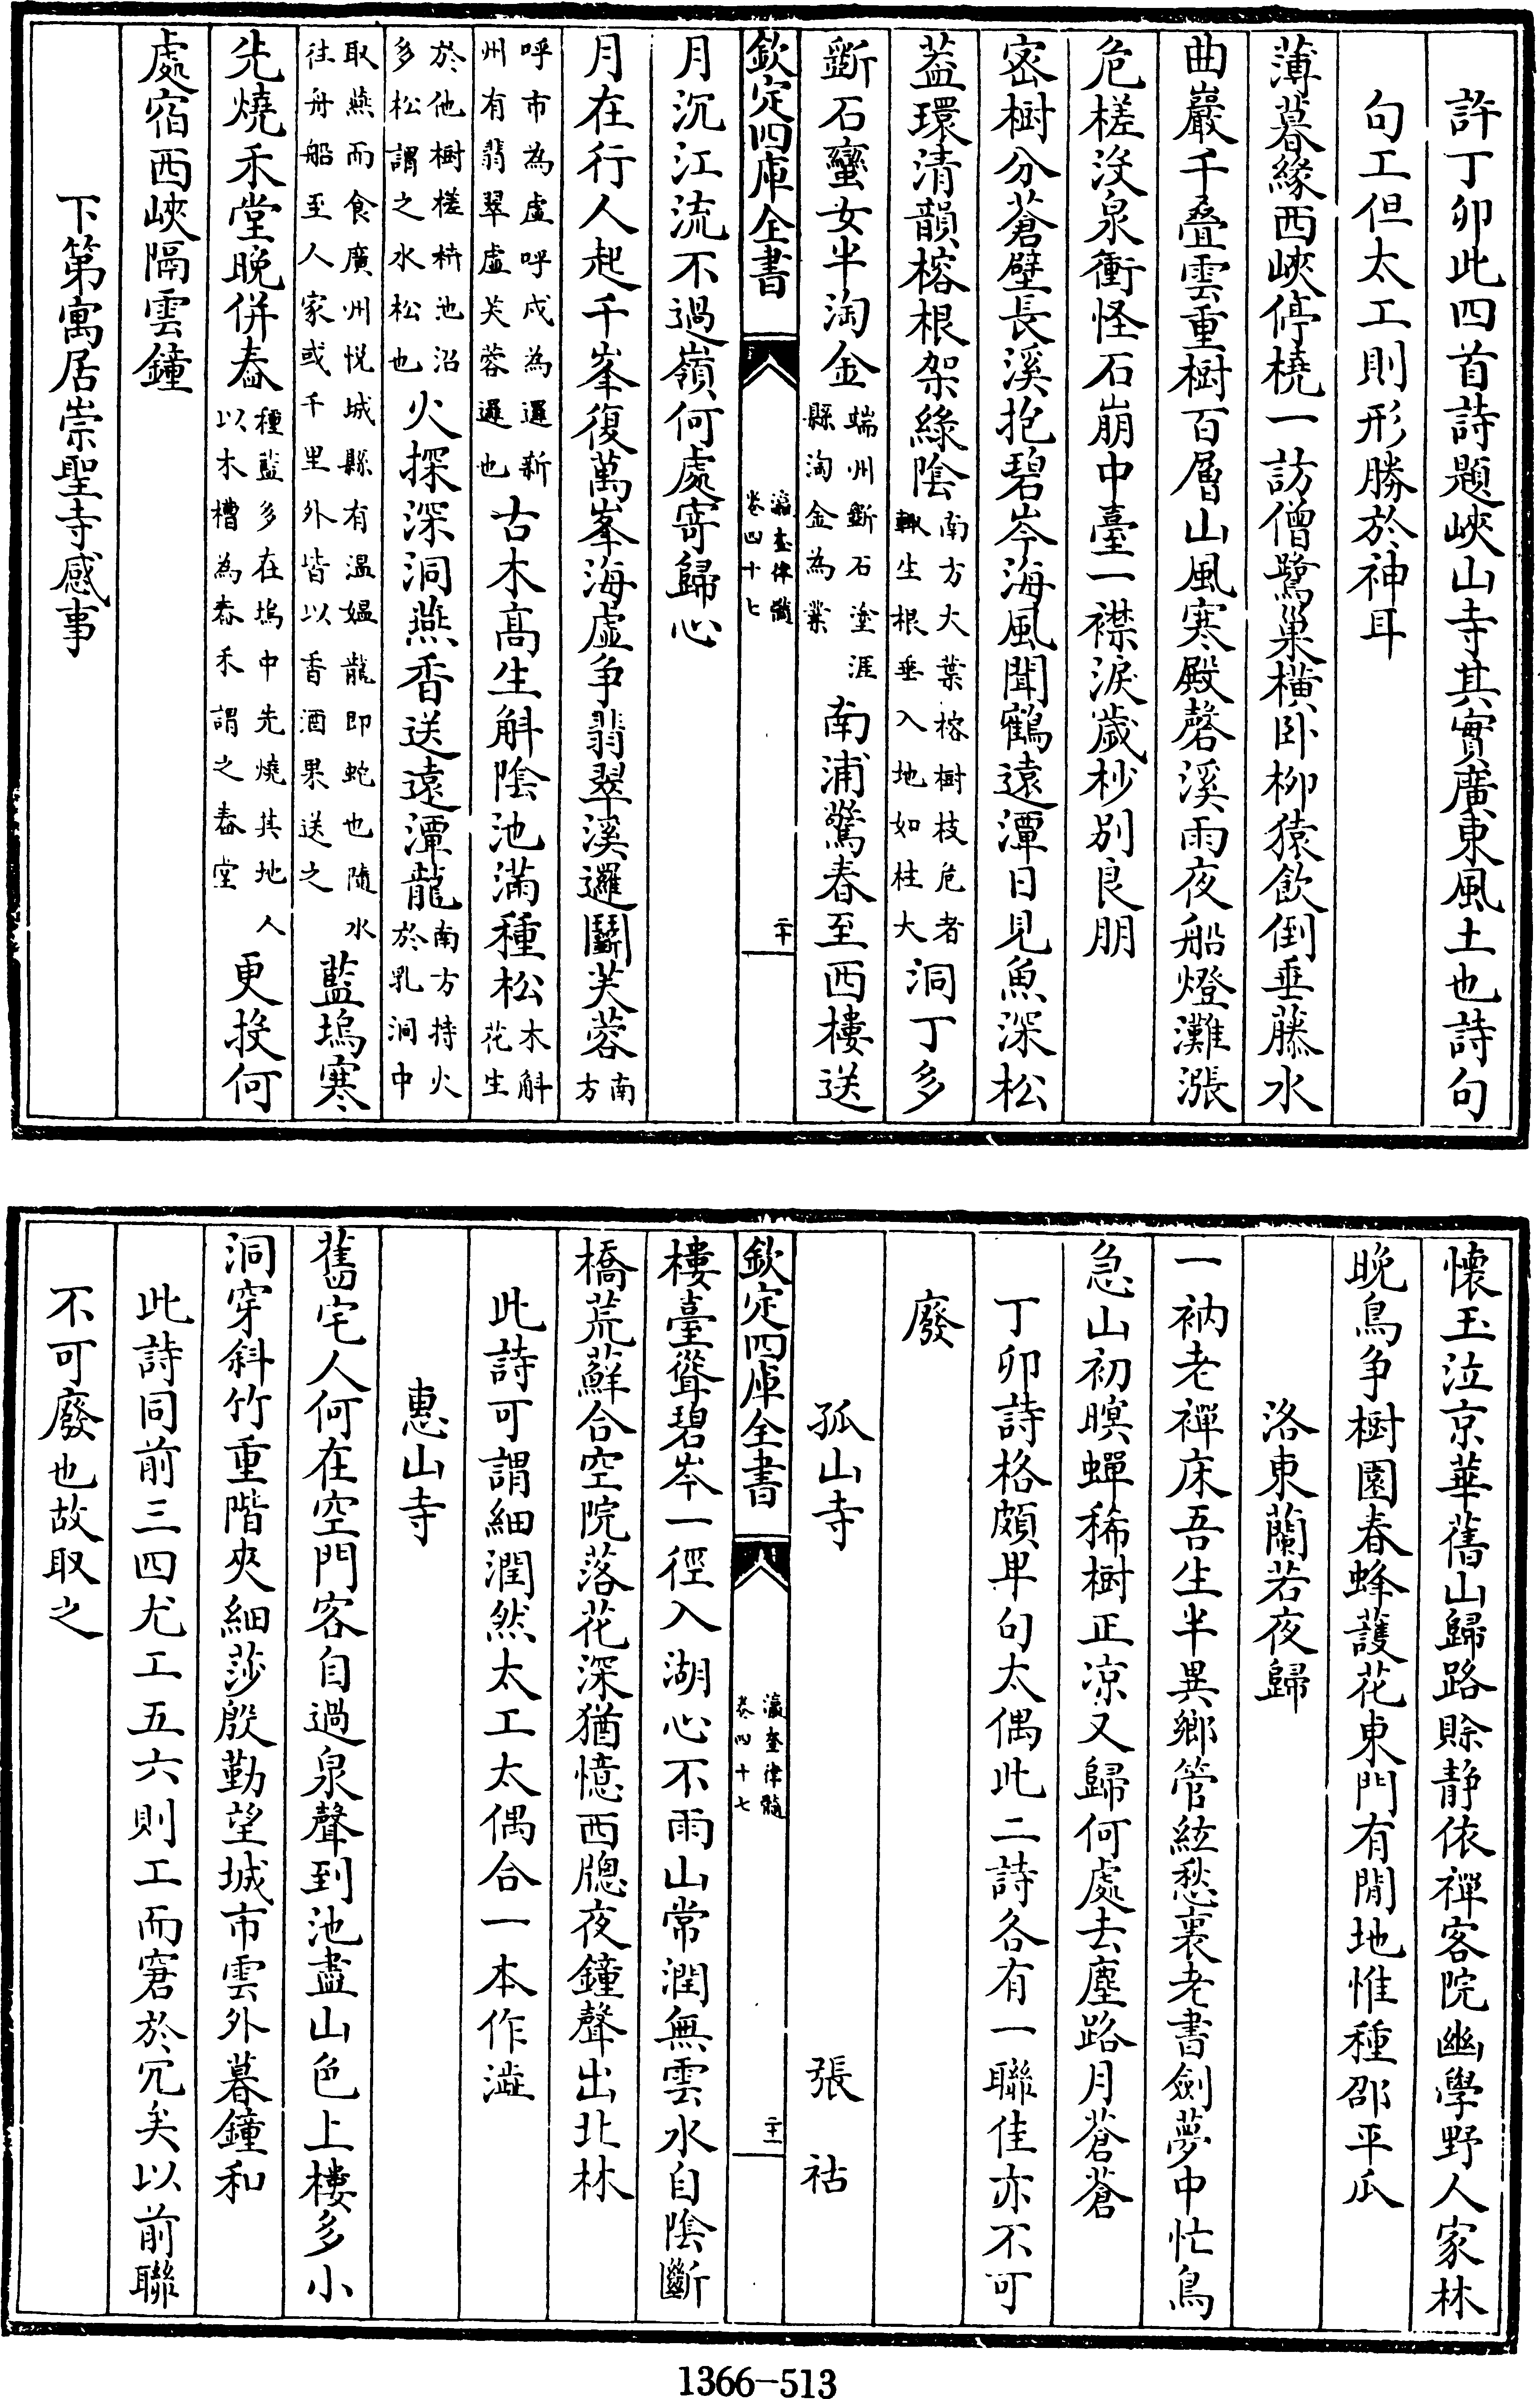 許丁卯此四首詩題峽山寺其實廣東風土也詩句
句工但太工則形勝於神耳
薄暮緣西峽停橈一訪僧鷺巢橫卧柳猿飲倒垂藤水
曲巖千疊雲重樹百層山風寒殿磬溪雨夜船燈灘漲
危槎沒泉衝怪石崩中臺一襟淚歲杪別良朋
密樹分蒼壁長溪抱碧岑海風聞鶴遠潭日見魚深松
葢環清韻榕根架綠陰南方大葉榕樹枝危者輙生根垂入地如柱大洞丁多
斵石蠻女半淘金端州斵石塗涯縣淘金為業南浦驚春至西樓送
欽定四庫全書
瀛奎律髓
卷四十七
二十
月沉江流不過嶺何處寄歸心
月在行人起千峯復萬峯海虛爭翡翠溪邏鬭芙蓉南方
呼市為虛呼戍為邏新州有翡翠虛芙蓉邏也古木高生斛陰池滿種松木斛花生
於他樹槎枿池沼多松謂之水松也火探深洞燕香送遠潭龍南方持火於乳洞中
取燕而食廣州悅城縣有温媪龍即蛇也隨水往舟船至人家或千里外皆以香酒果送之藍塢寒
先燒禾堂晚併舂種藍多在塢中先燒其地人以木槽為舂禾謂之舂堂更投何
處宿西峽隔雲鐘
下第寓居崇聖寺感事
懷玉泣京華舊山歸路賒静依禪客院幽學野人家林
晚鳥爭樹園春蜂護花東門有閒地惟種邵平瓜
洛東蘭若夜歸
一衲老禪床吾生半異鄉管絃愁裏老書劍夢中忙鳥
急山初暝蟬稀樹正凉又歸何處去塵路月蒼蒼
丁卯詩格頗卑句太偶此二詩各有一聯佳亦不可
廢
孤山寺 張祜
欽定四庫全書
瀛奎律髓
卷四十七
二十一
樓臺聳碧岑一徑入湖心不雨山常潤無雲水自陰斷
橋荒蘚合空院落花深猶憶西牕夜鐘聲出北林
此詩可謂細潤然太工太偶合一本作澁
惠山寺
舊宅人何在空門客自過泉聲到池盡山色上樓多小
洞穿斜竹重階夾細莎殷勤望城市雲外暮鐘和
此詩同前三四尤工五六則工而窘於冗矣以前聯
不可廢也故取之
1366-513